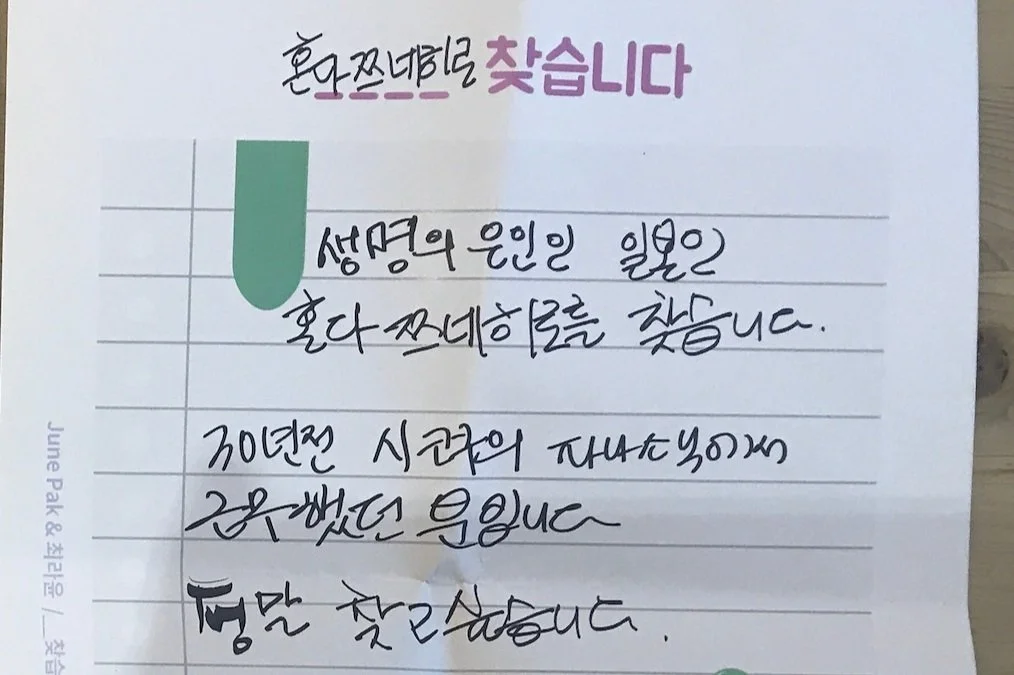 혼다쯔네히로 찾습니다
생명의 은인인 일본인
혼다 쯔네히로를 찾습니다.
30년전 시코쿠의 파나소닉에서
근무했던 분입니다
정말 찾고싶습니다.
June Pak & 최라윤 / _찾습